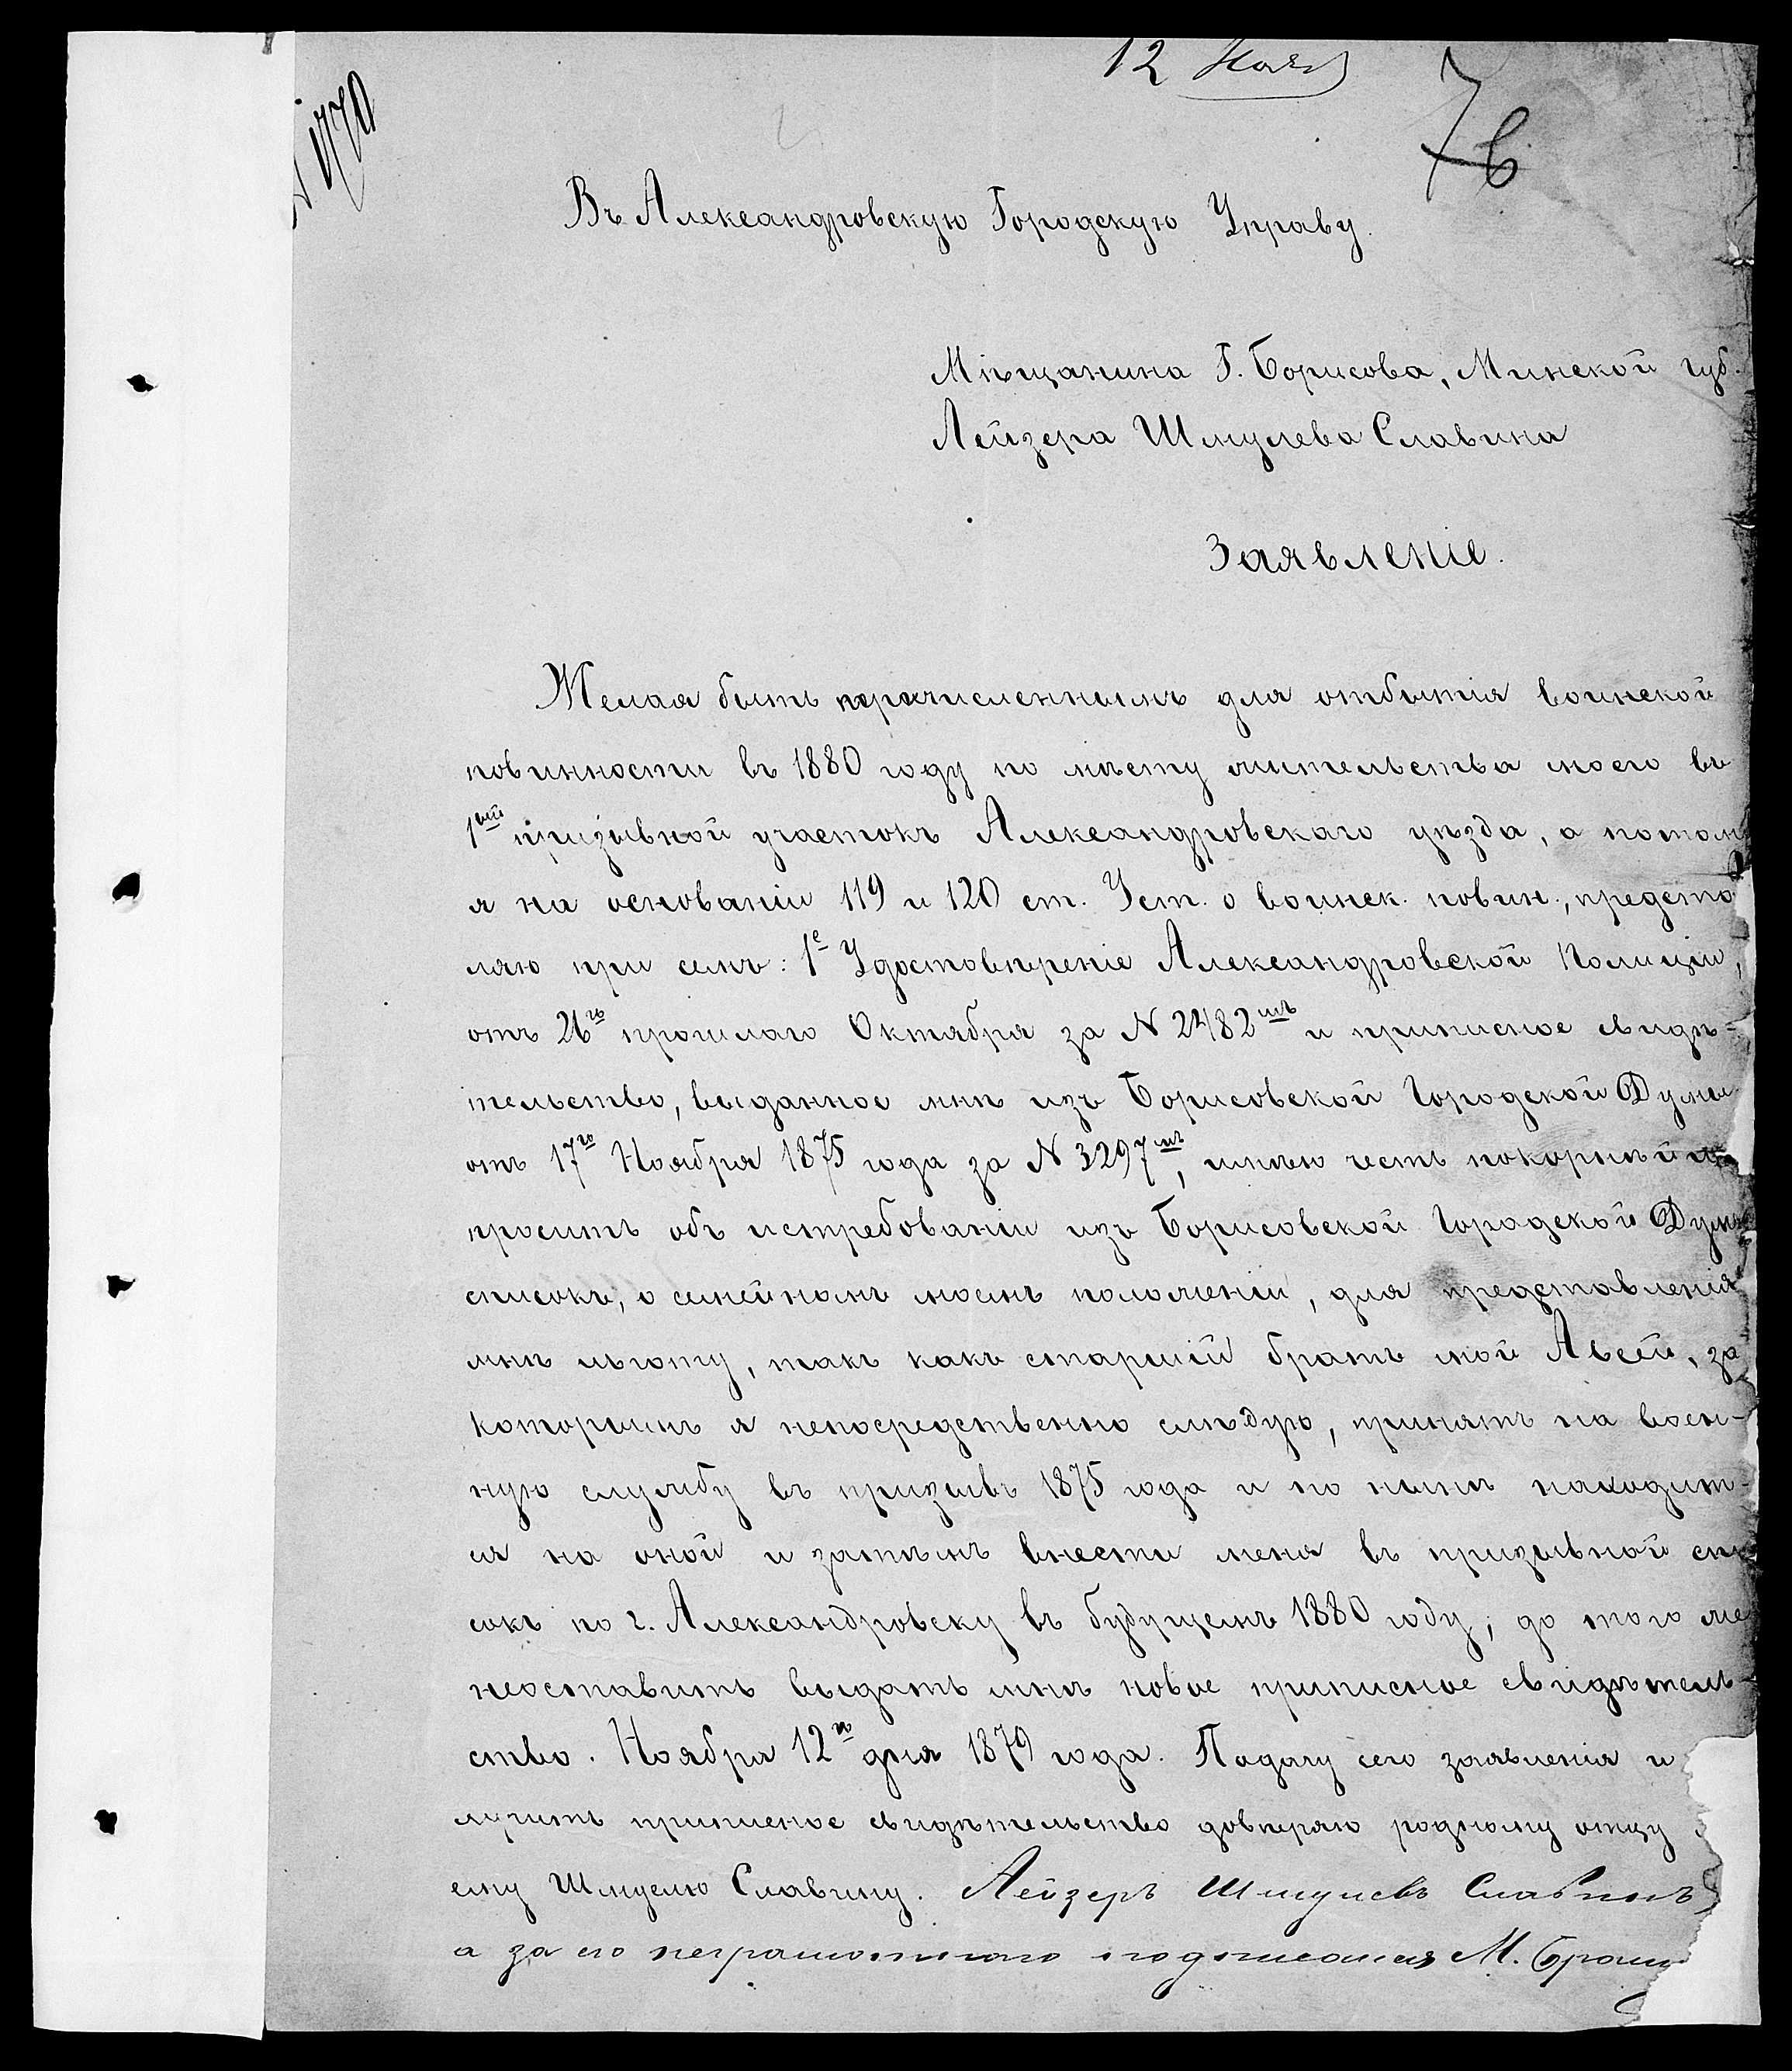 12 Нояб
76
N 1770
Въ Александровскую Городскую Управу.
Мѣщанина Г. Борисова, Минской губ.
Лейзера Шмулева Славина
Заявленіе.
Желая быть перечисленнымъ для отбытія воинской
повинности въ 1880 году по мѣсту жительства моего въ
1ый призывной участокъ Александровскаго уѣзда, а потом
я на основаніи 119 и 120 ст. Уст. о воинск. повин., предста
ляю при семъ: 1е Удостовѣреніе Александровской Полиціи,
отъ 26го прошлаго Октября за N 2482мъ и приписное свидѣ-
тельство, выданное мнѣ изъ Борисовской Городской Думы
отъ 17го Ноября 1875 года за N 3297мъ, имѣю честь покорнѣй
просить объ истребованіи изъ Борисовской Городской Думы
списокъ, о семейномъ моемъ положеніи, для представленія
мнѣ льготу, такъ какъ старшій братъ мой Авсей, за
которымъ я непосредственно слѣдую, принятъ на воен-
ную службу въ призывъ 1875 года и по нынѣ находит-
ся на оной и затѣмъ внести меня въ призывной спи
сокъ по г. Александровску въ будущемъ 1880 году; до того же
неоставить выдать мнѣ новое приписное свидѣтель-
ство. Ноября 12го дня 1879 года. Подачу сего заявленія и
лучить приписное свидѣтельство довѣряю родному отцу
ему Шмуелю Славину. Лейзеръ Шмулевъ Славинъ
а за его неграмотнаго подписался М. Брош